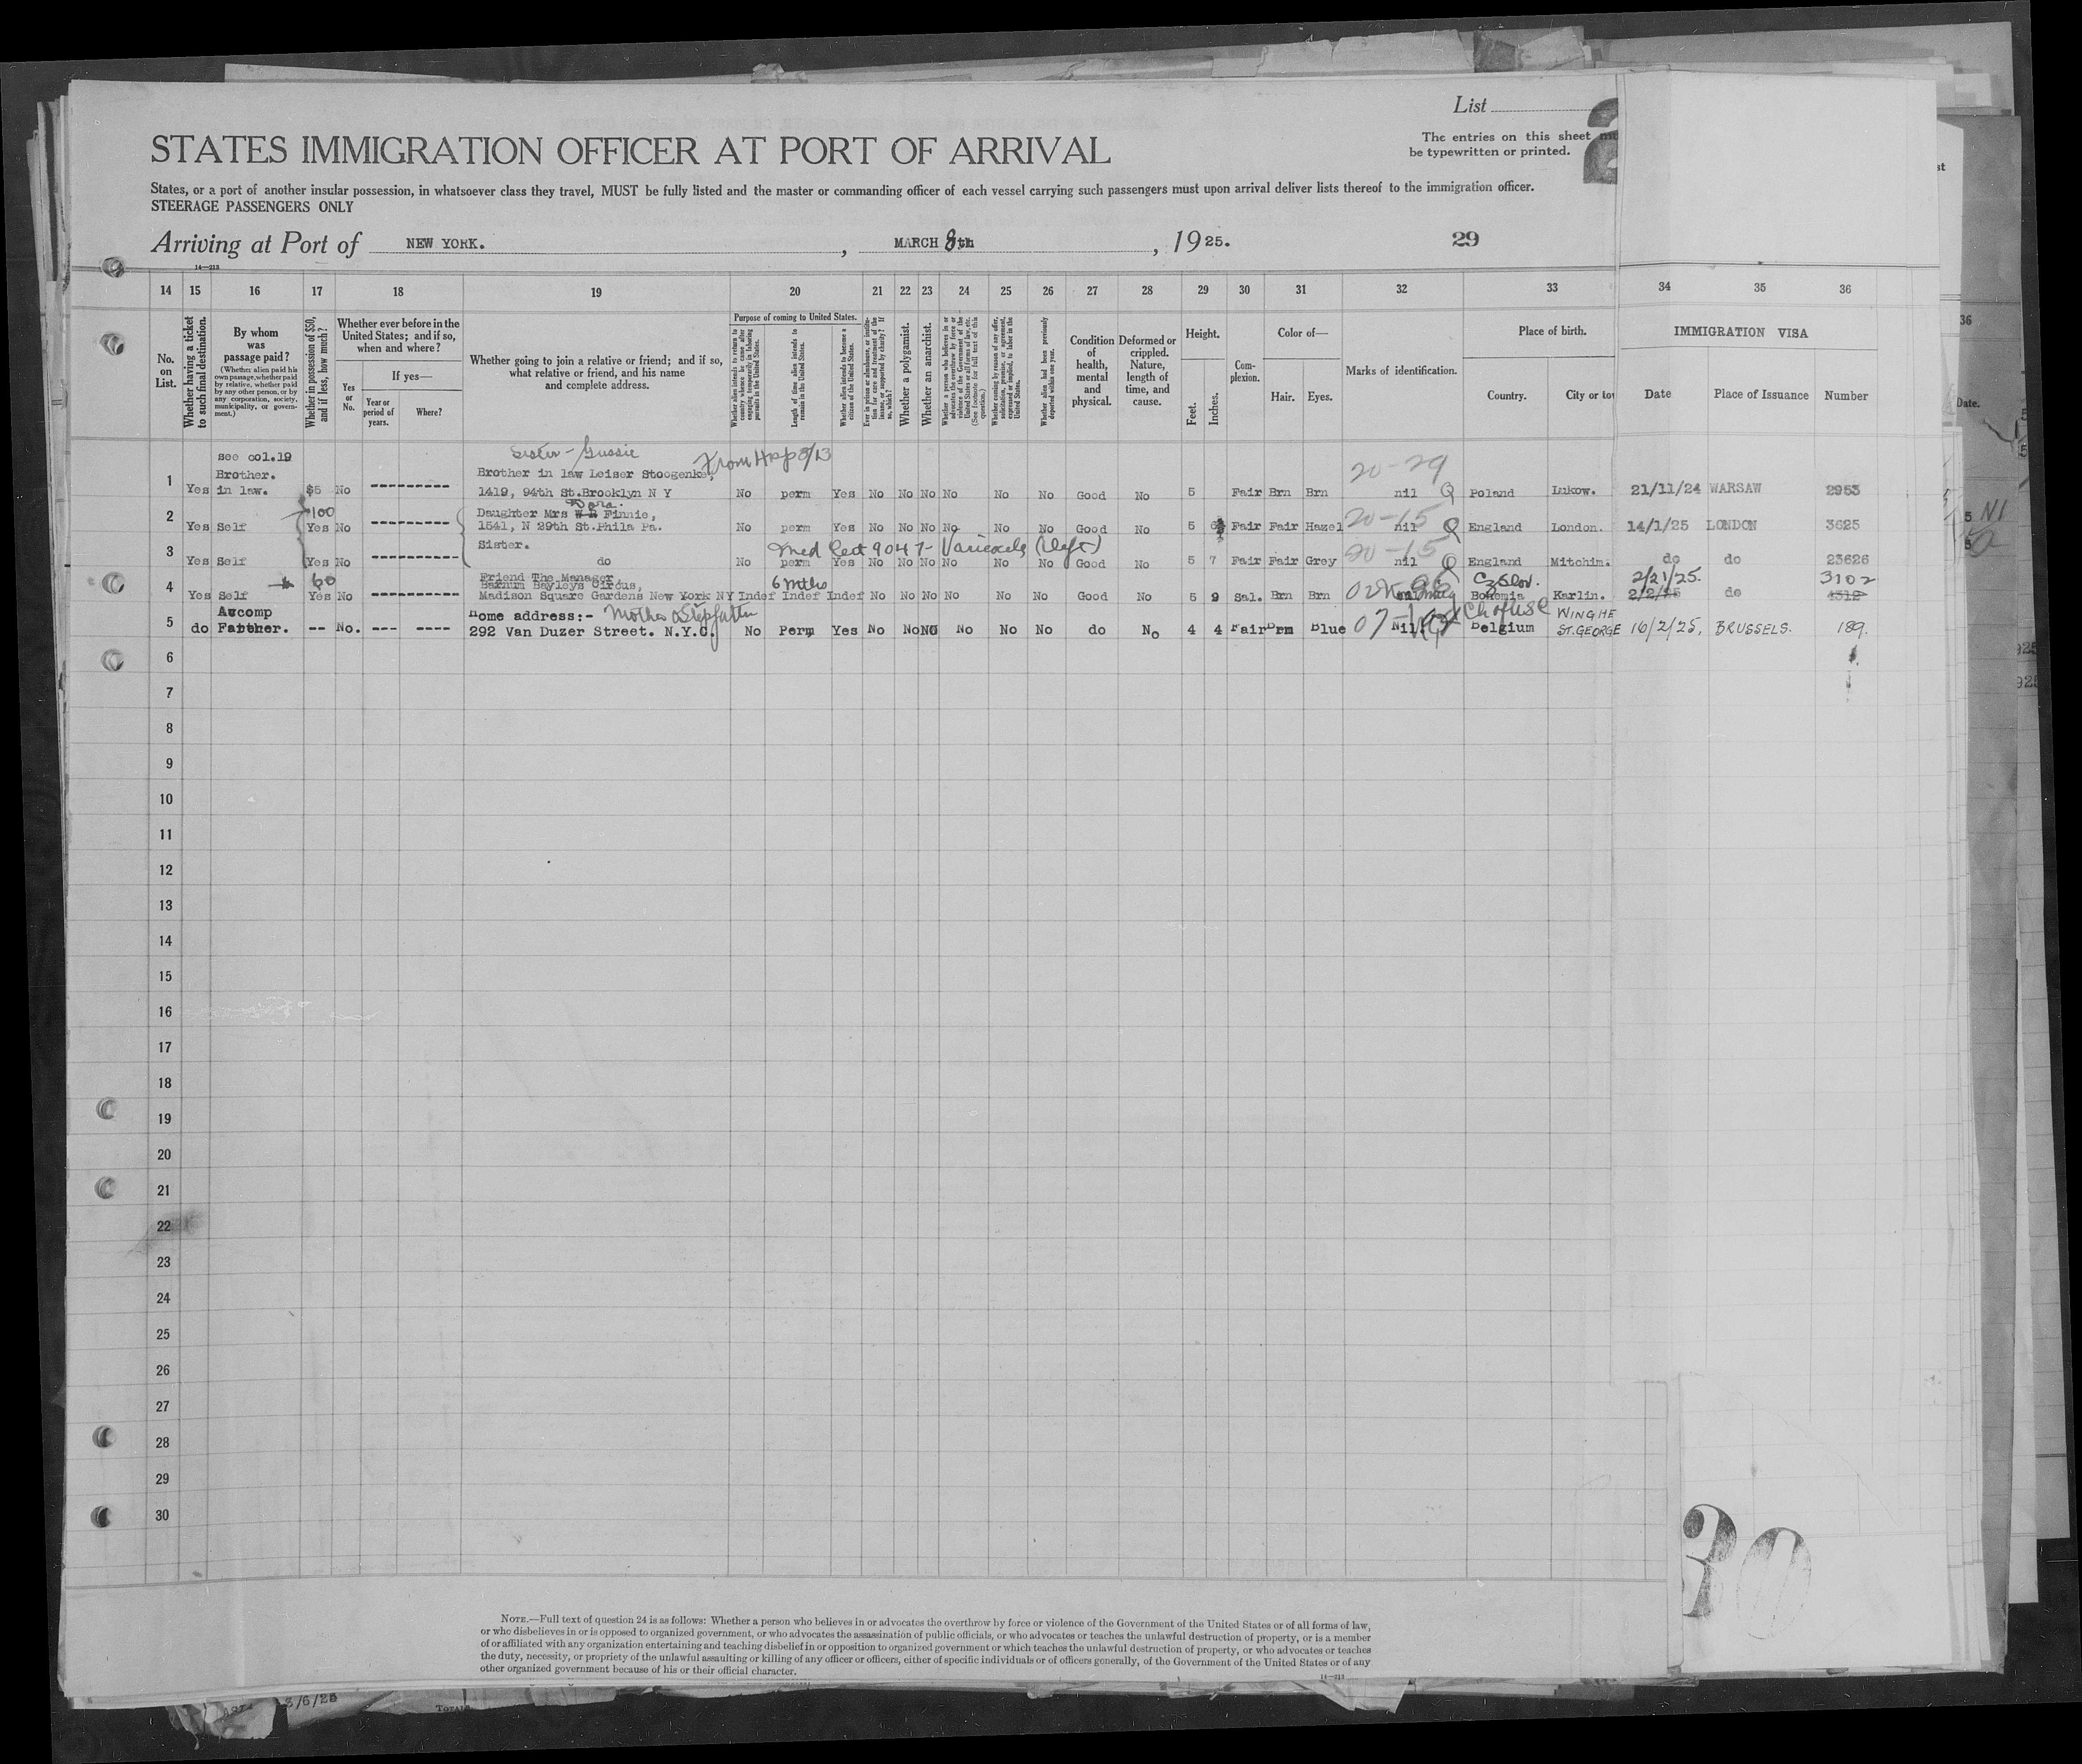 List
The entries on this sheet
be typewritten or printed.
STATES IMMIGRATION OFFICER AT PORT OF ARRIVAL
States, or a port of another insular possession, in whatsoever class they travel, MUST be fully listed and the master or commanding officer of each vessel carrying such passengers must upon arrival deliver lists thereof to the immigration officer.
STEERAGE PASSENGERS ONLY
Arriving at Port of NEW YORK. , MARCH 8th , 1925. 29
14—213
14 15 16 17 18 19 20 21 22 23 24 25 26 27 28 29 30 31 32 33 34 35 36
No. on List.
Whether having a ticket to such final destination.
By whom was passage paid?
(Whether alien paid his own passage, whether paid by relative, whether paid by any other person, or by any corporation, society, municipality, or government.)
Whether in possession of $50, and if less, how much?
Whether ever before in the United States; and if so, when and where?
Yes or No.
If yes—
Year or period of years.
Where?
Whether going to join a relative or friend; and if so, what relative or friend, and his name and complete address.
Purpose of coming to United States.
Length of time alien intends to remain in the United States.
Whether alien intends to become a citizen of the United States.
Whether a polygamist.
Whether an anarchist.
Condition of health, mental and physical.
Deformed or crippled. Nature, length of time, and cause.
Height.
Feet.
Inches.
Complexion.
Color of—
Hair.
Eyes.
Marks of identification.
Place of birth.
Country.
City or to
IMMIGRATION VISA
Date
Place of Issuance
Number
see col.19 Sister - Gussie
Brother. Brother in law Leiser 20-29
1 Yes in law. $5 No --------- 1419, 94th St.Brooklyn N Y No perm Yes No No No No No No Good No 5 Fair Brn Brn nil Q Poland Lukow. 21/11/24 WARSAW 2953
100 Daughter Mrs Dora. Finnie, 20-15
2 Yes Self Yes No --------- 1541, N 29th St.Phila Pa. No perm Yes No No No No No No Good No 5 Fair Fair Hazel nil Q England London. 14/1/25 LONDON 3625
Sister. Med Cert 9047- Varicocele (left) 20-15
3 Yes Self Yes No ---------- do No perm Yes No No No No No No Good No 5 7 Fair Fair Grey nil Q England Mitchim. do do 23626
60 Friend The Manager, 6 mths CzSlov. 2/21/25. 3102
Barnum Bayleys Circus,
4 Yes Self Yes No --------- Madison Square Gardens New York NY Indef Indef Indef No No No No No No Good No 5 9 Sal. Brn Brn Bohemia Karlin. 2/2/25 do 4312
Accomp Home address:- Mother & Stepfather WINGHE
5 do Father. -- No. --- ---- 292 Van Duzer Street. N.Y.C. No Perm Yes No No No No No No do No 4 4 Fair Brn Blue Nil Belgium ST.GEORGE 16/2/25, BRUSSELS. 189.
6
7
8
9
10
11
12
13
14
15
16
17
18
19
20
21
22
23
24
25
26
27
28
29
30
30
NOTE.—Full text of question 24 is as follows: Whether a person who believes in or advocates the overthrow by force or violence of the Government of the United States or of all forms of law,
or who disbelieves in or is opposed to organized government, or who advocates the assassination of public officials, or who advocates or teaches the unlawful destruction of property, or is a member
of or affiliated with any organization entertaining and teaching disbelief in or opposition to organized government or which teaches the unlawful destruction of property, or who advocates or teaches
the duty, necessity, or propriety of the unlawful assaulting or killing of any officer or officers, either of specific individuals or of officers generally, of the Government of the United States or of any
other organized government because of his or their official character.
14—213
3/6/25